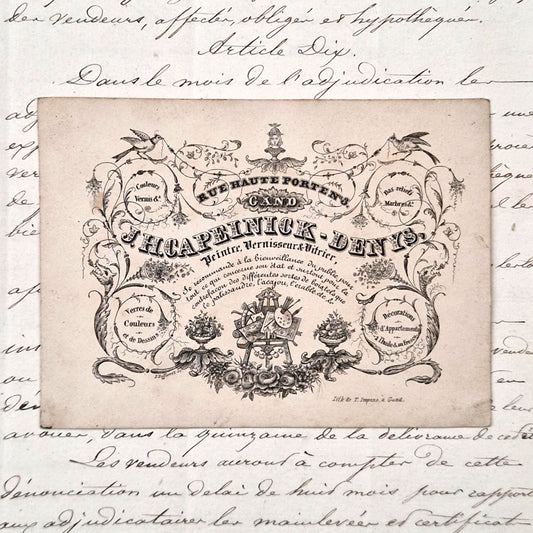 des vendeurs, affecter, obliger et hypothéquer.
Article Dix.
Dans le mois de l'adjudication les
RUE HAUTE PORTE
GAND
J.H.CAPEINICK-DENYS,
Peintre, Vernisseur & Vitrier,
Se recommande à la bienveillance du public pour
tout ce qui concerne son état et surtout pour la
contrefaçon des différentes sortes de bois, tels que
le palissandre, l'acajou, l'érable &c. &c.
Couleurs
Vernis &c.
Bas-reliefs
Marbres &c.
Verres de
Couleurs
et de Dessins
Décorations
d'Appartements
à l'huile & en
Lith. de T. à Gand.
avouer, dans la quinzaine de la délivrance de
Les vendeurs auront à compter de cette
dénonciation un délai de huit mois pour rapporter
aux adjudicataires les mainlevées et certificats